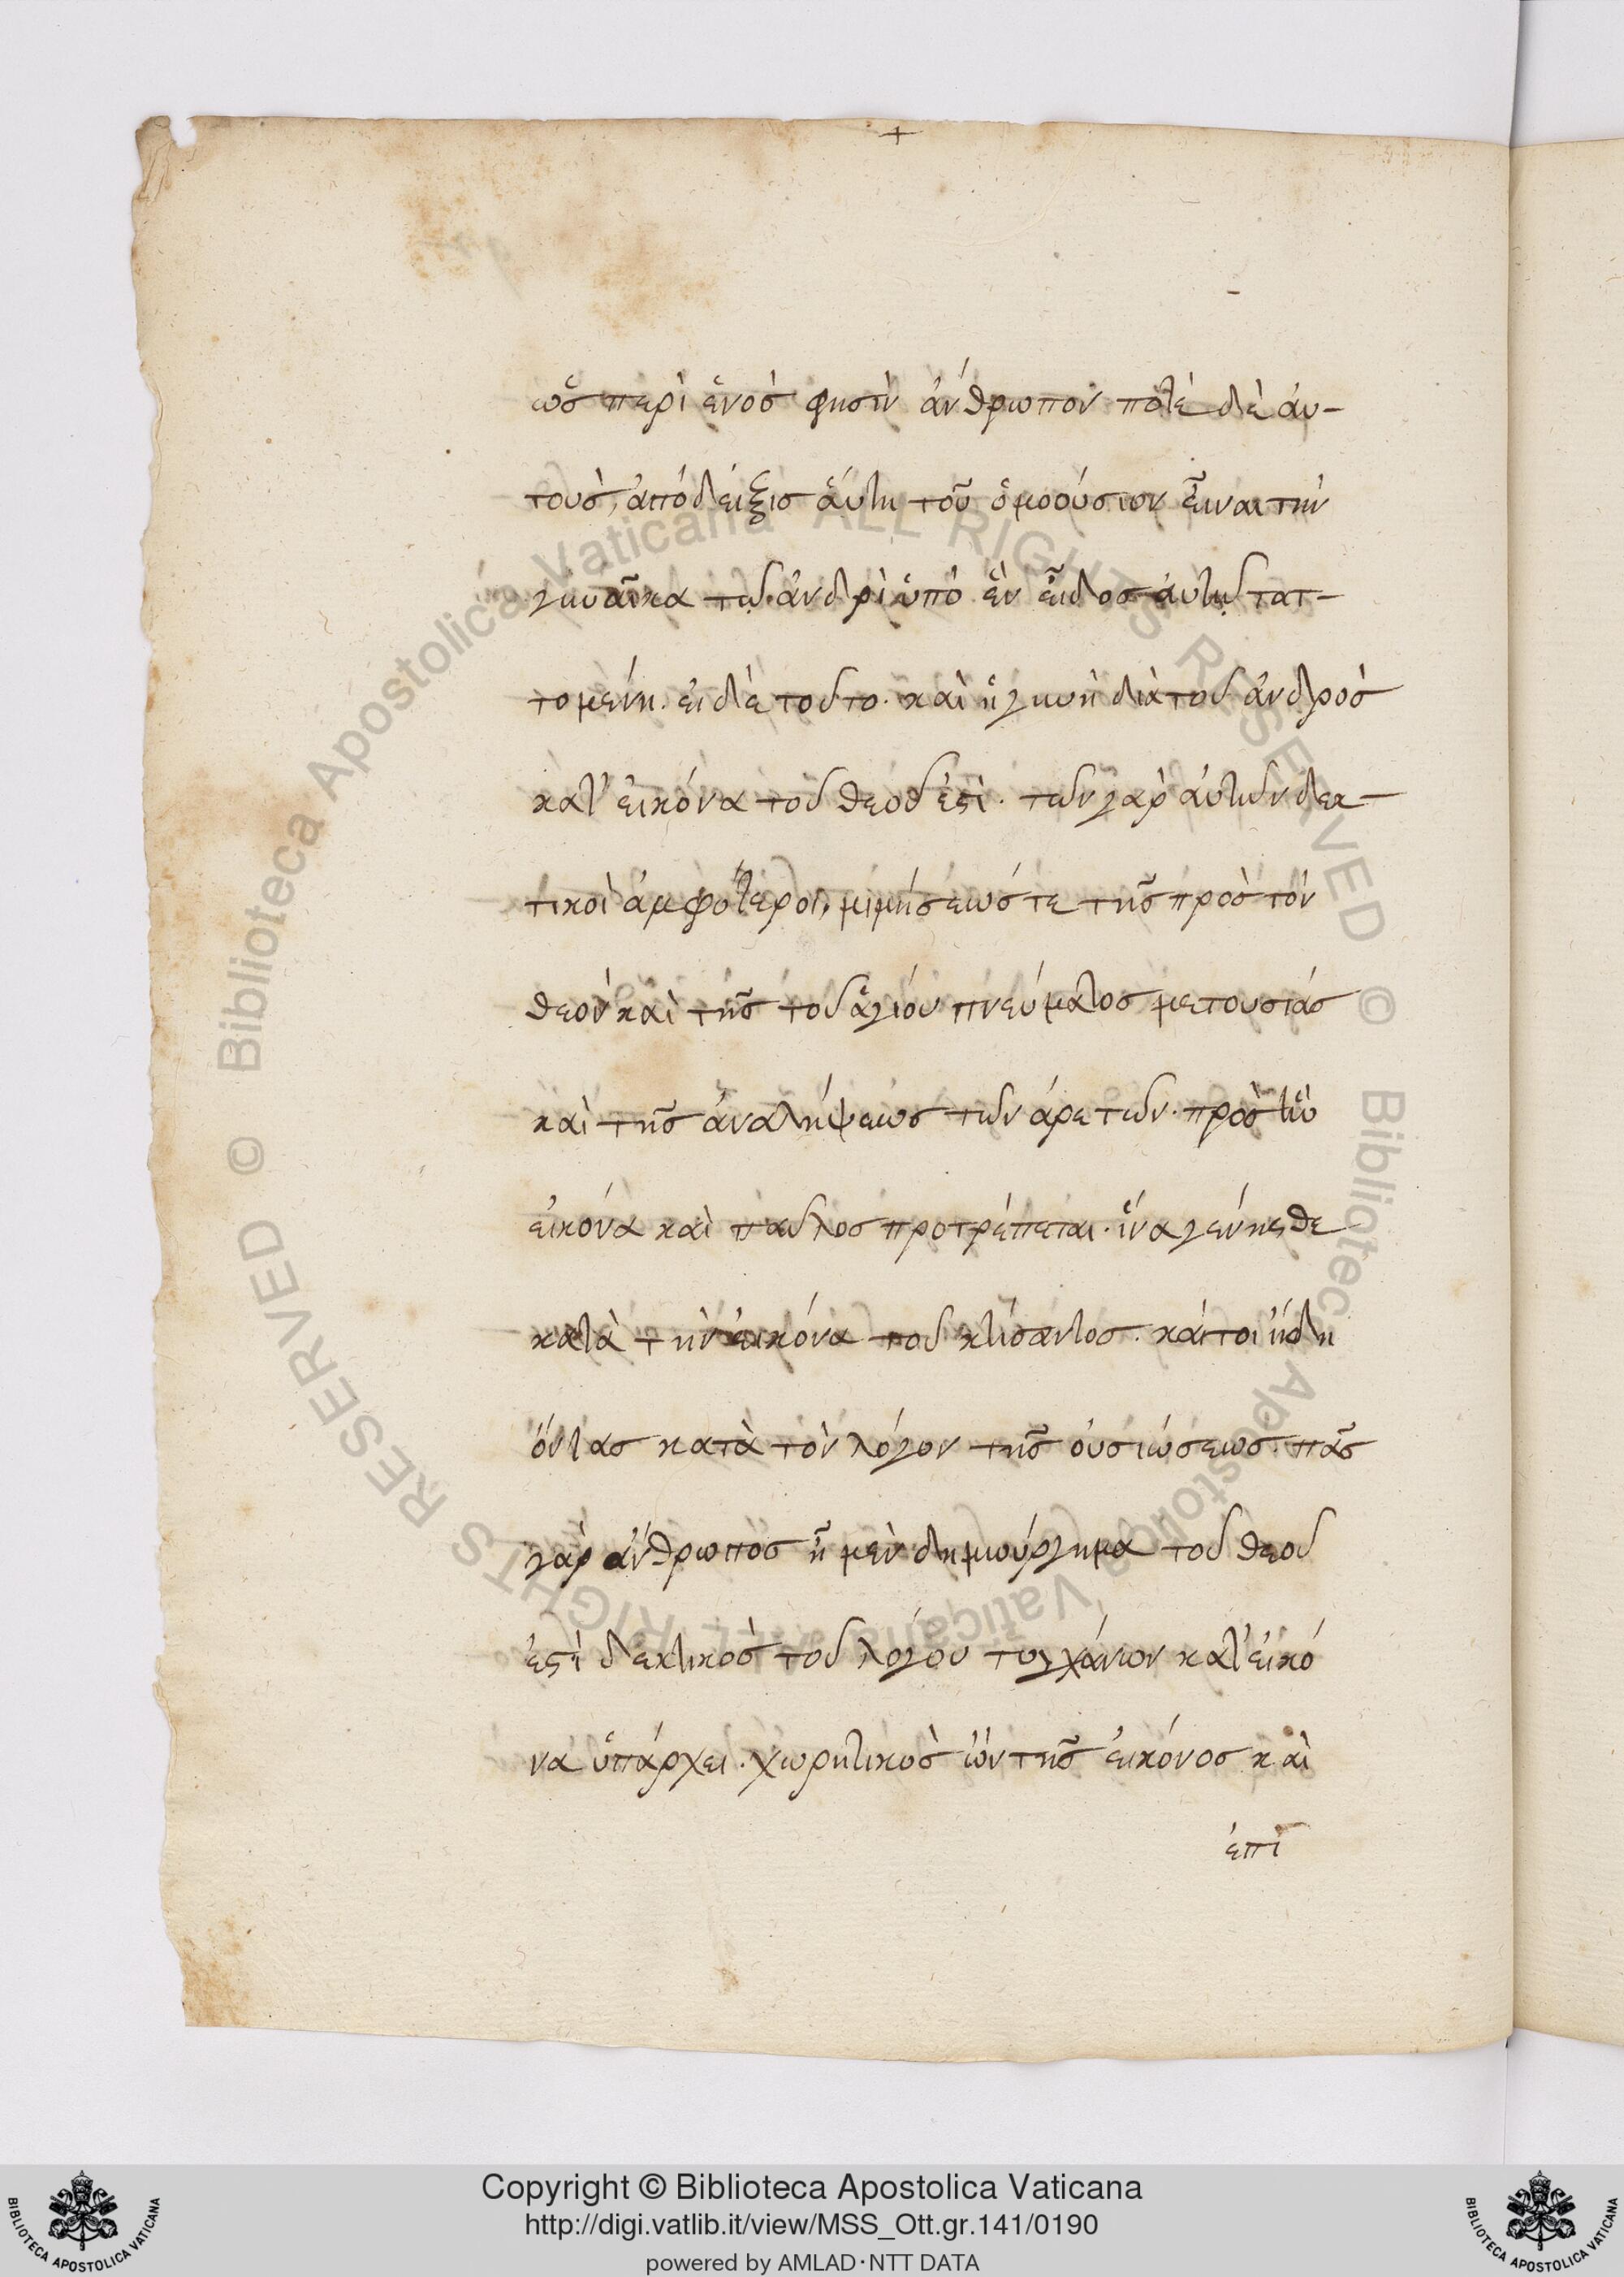 +
ὡς περὶ ἑνός φησὶν ἄνθρωπον ποτὲ δὲ ἀυ-
τοὺς, ἀπόδειξις ἅυτη τοῦ ὁμοούσιον εἶναι τὴν
γυναῖκα τῷ ἀνδρὶ ὑπὸ ἓν εἶδος ἀυτῷ τατ-
τομένη. ει δὲ τοῦτο. καὶ ἡ γυνὴ διὰ τοῦ ἀνδρὸς
κατ' εικόνα τοῦ θεοῦ ἐστὶ. τῶν γαρ ἀυτῶν δεκ-
τικοὶ ἀμφότεροι, μιμήσεώς τε τῆς πρὸς τὸν
θεὸν καὶ τῆς τοῦ ἁγίου πνεύματος μετουσίας
καὶ τῆς ἀναλήψεως τῶν ἀρετῶν. πρὸς τὴν
εἰκόνα καὶ παῦλος προτρέπεται. ἵνα γένησθε
κατὰ τὴν ἐικόνα τοῦ κτίσαντος. κάιτοι ἤδη
ὄντας κατὰ τὸν λόγον τῆς ὀυσιώσεως. πᾶς
γὰρ ἄνθρωπος ᾗ μὲν δημιούργημα τοῦ θεοῦ
ἐστὶ δεκτικὸς τοῦ λόγου τυγχάνων κατ' ἐικό
να ὑπάρχει. χωρητικὸς ὢν τῆς ἐικόνος καὶ
ἐπὶ
Copyright © Biblioteca Apostolica Vaticana
http://digi.vatlib.it/view/MSS_Ott.gr.141/0190
powered by AMLAD·NTT DATA
BIBLIOTECA APOSTOLICA VATICANA
BIBLIOTECA APOSTOLICA VATICANA
© Biblioteca Apostolica Vaticana ALL RIGHTS RESERVED
© Biblioteca Apostolica Vaticana ALL RIGHTS RESERVED